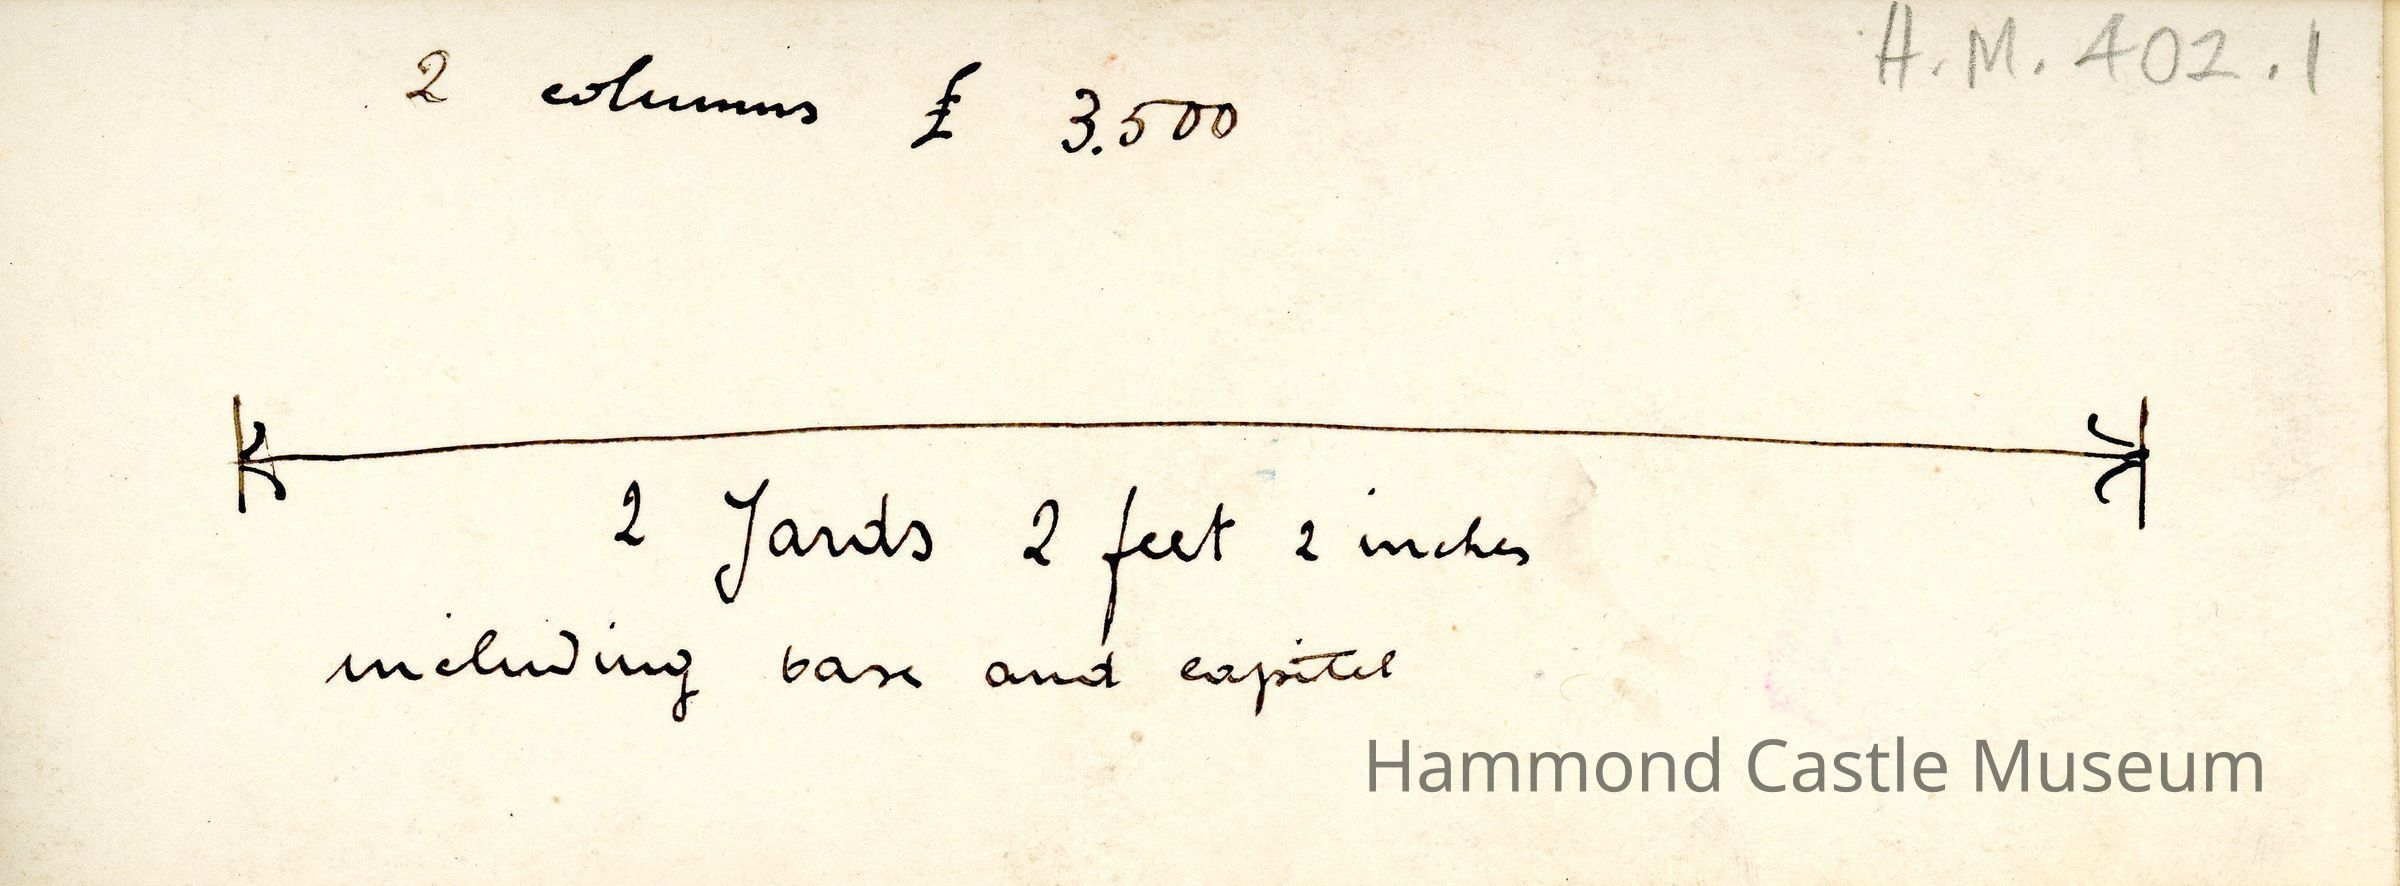 H.M. 402.1
2 columns £ 3.500
2 Yards 2 feet 2 inches
including base and capitel
Hammond Castle Museum